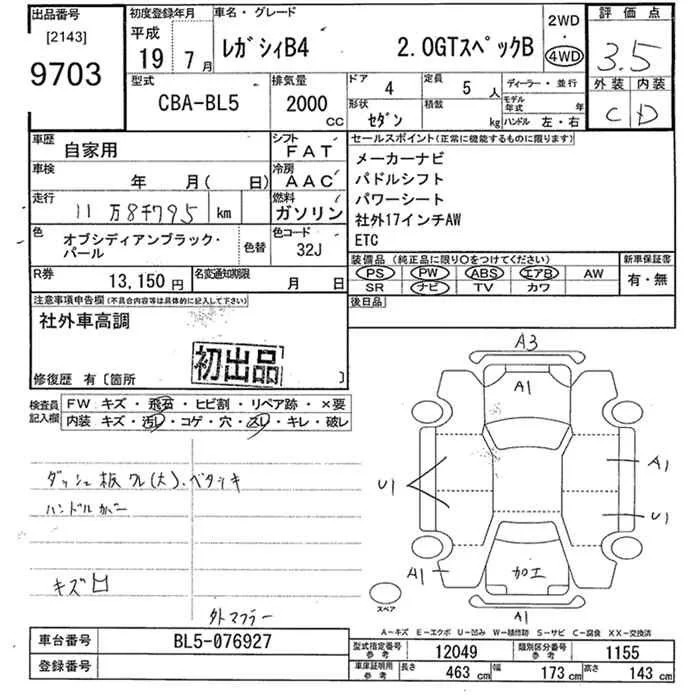 出品番号
[2143]
9703
初度登録年月
平成
19年 7月
車名・グレード
レガシィB4 2.0GTスペックB
2WD
・
4WD
評価点
3.5
外装 内装
C D
型式
CBA-BL5
排気量
2000
CC
ドア
4
定員
5人
形状
セダン
積載
kg
ディーラー・並行
モデル年式 年
ハンドル 左・右
車歴
自家用
シフト
FAT
車検
年 月( 日)
冷房
AAC
走行
11万8千795 km
燃料
ガソリン
色
オブシディアンブラック・
パール
色替
色コード
32J
R券
13,150円
名変通知期限
月 日
セールスポイント(正常に機能するものに限ります)
メーカーナビ
パドルシフト
パワーシート
社外17インチAW
ETC
装備品(純正品に限り○をつけてください)
PS PW ABS エアB AW
SR ナビ TV カワ
新車保証書
有・無
後日品
注意事項申告欄(不具合内容等は具体的に記入して下さい)
社外車高調
初出品
修復歴 有〔箇所 〕
検査員
記入欄
FW キズ・飛石・ヒビ割・リペア跡・×要
内装 キズ・汚レ・コゲ・穴・スレ・キレ・破レ
ダッシュ板
ハンドルカバー
キズ凹
外マフラー
A3
A1
U1
A1
U1
A1
加工
A1
スペア
A-キズ E-エクボ U-凹み W-補修跡 S-サビ C-腐食 XX-交換済
車台番号
BL5-076927
登録番号
型式指定番号
参考
12049
類別区分番号
参考
1155
車庫証明用
参考
長さ
463 cm
幅
173 cm
高さ
143 cm